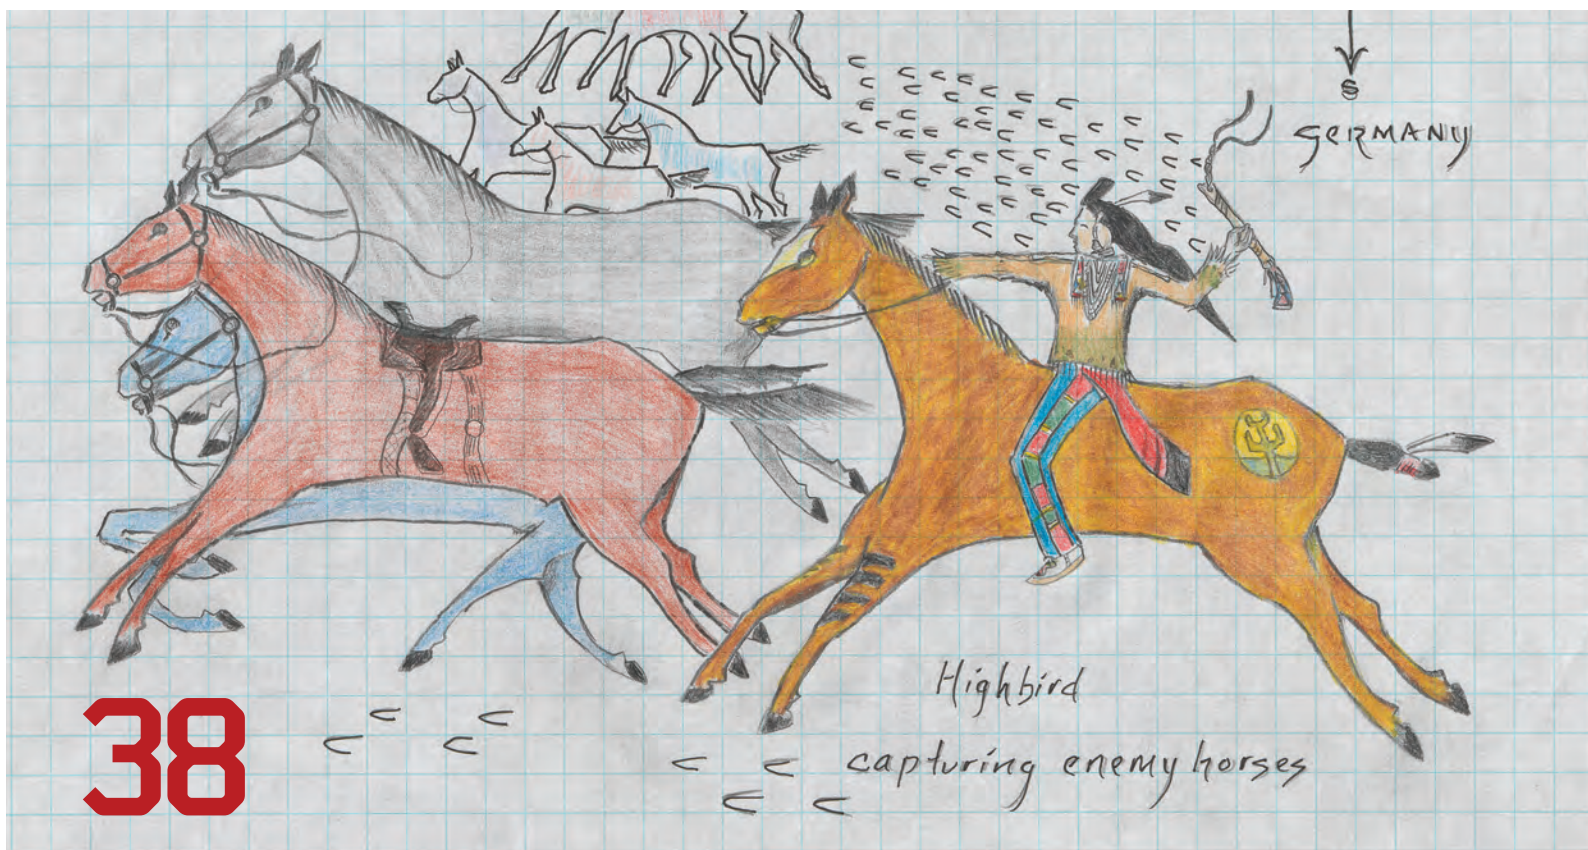 S
GERMANY
Highbird
capturing enemy horses
38